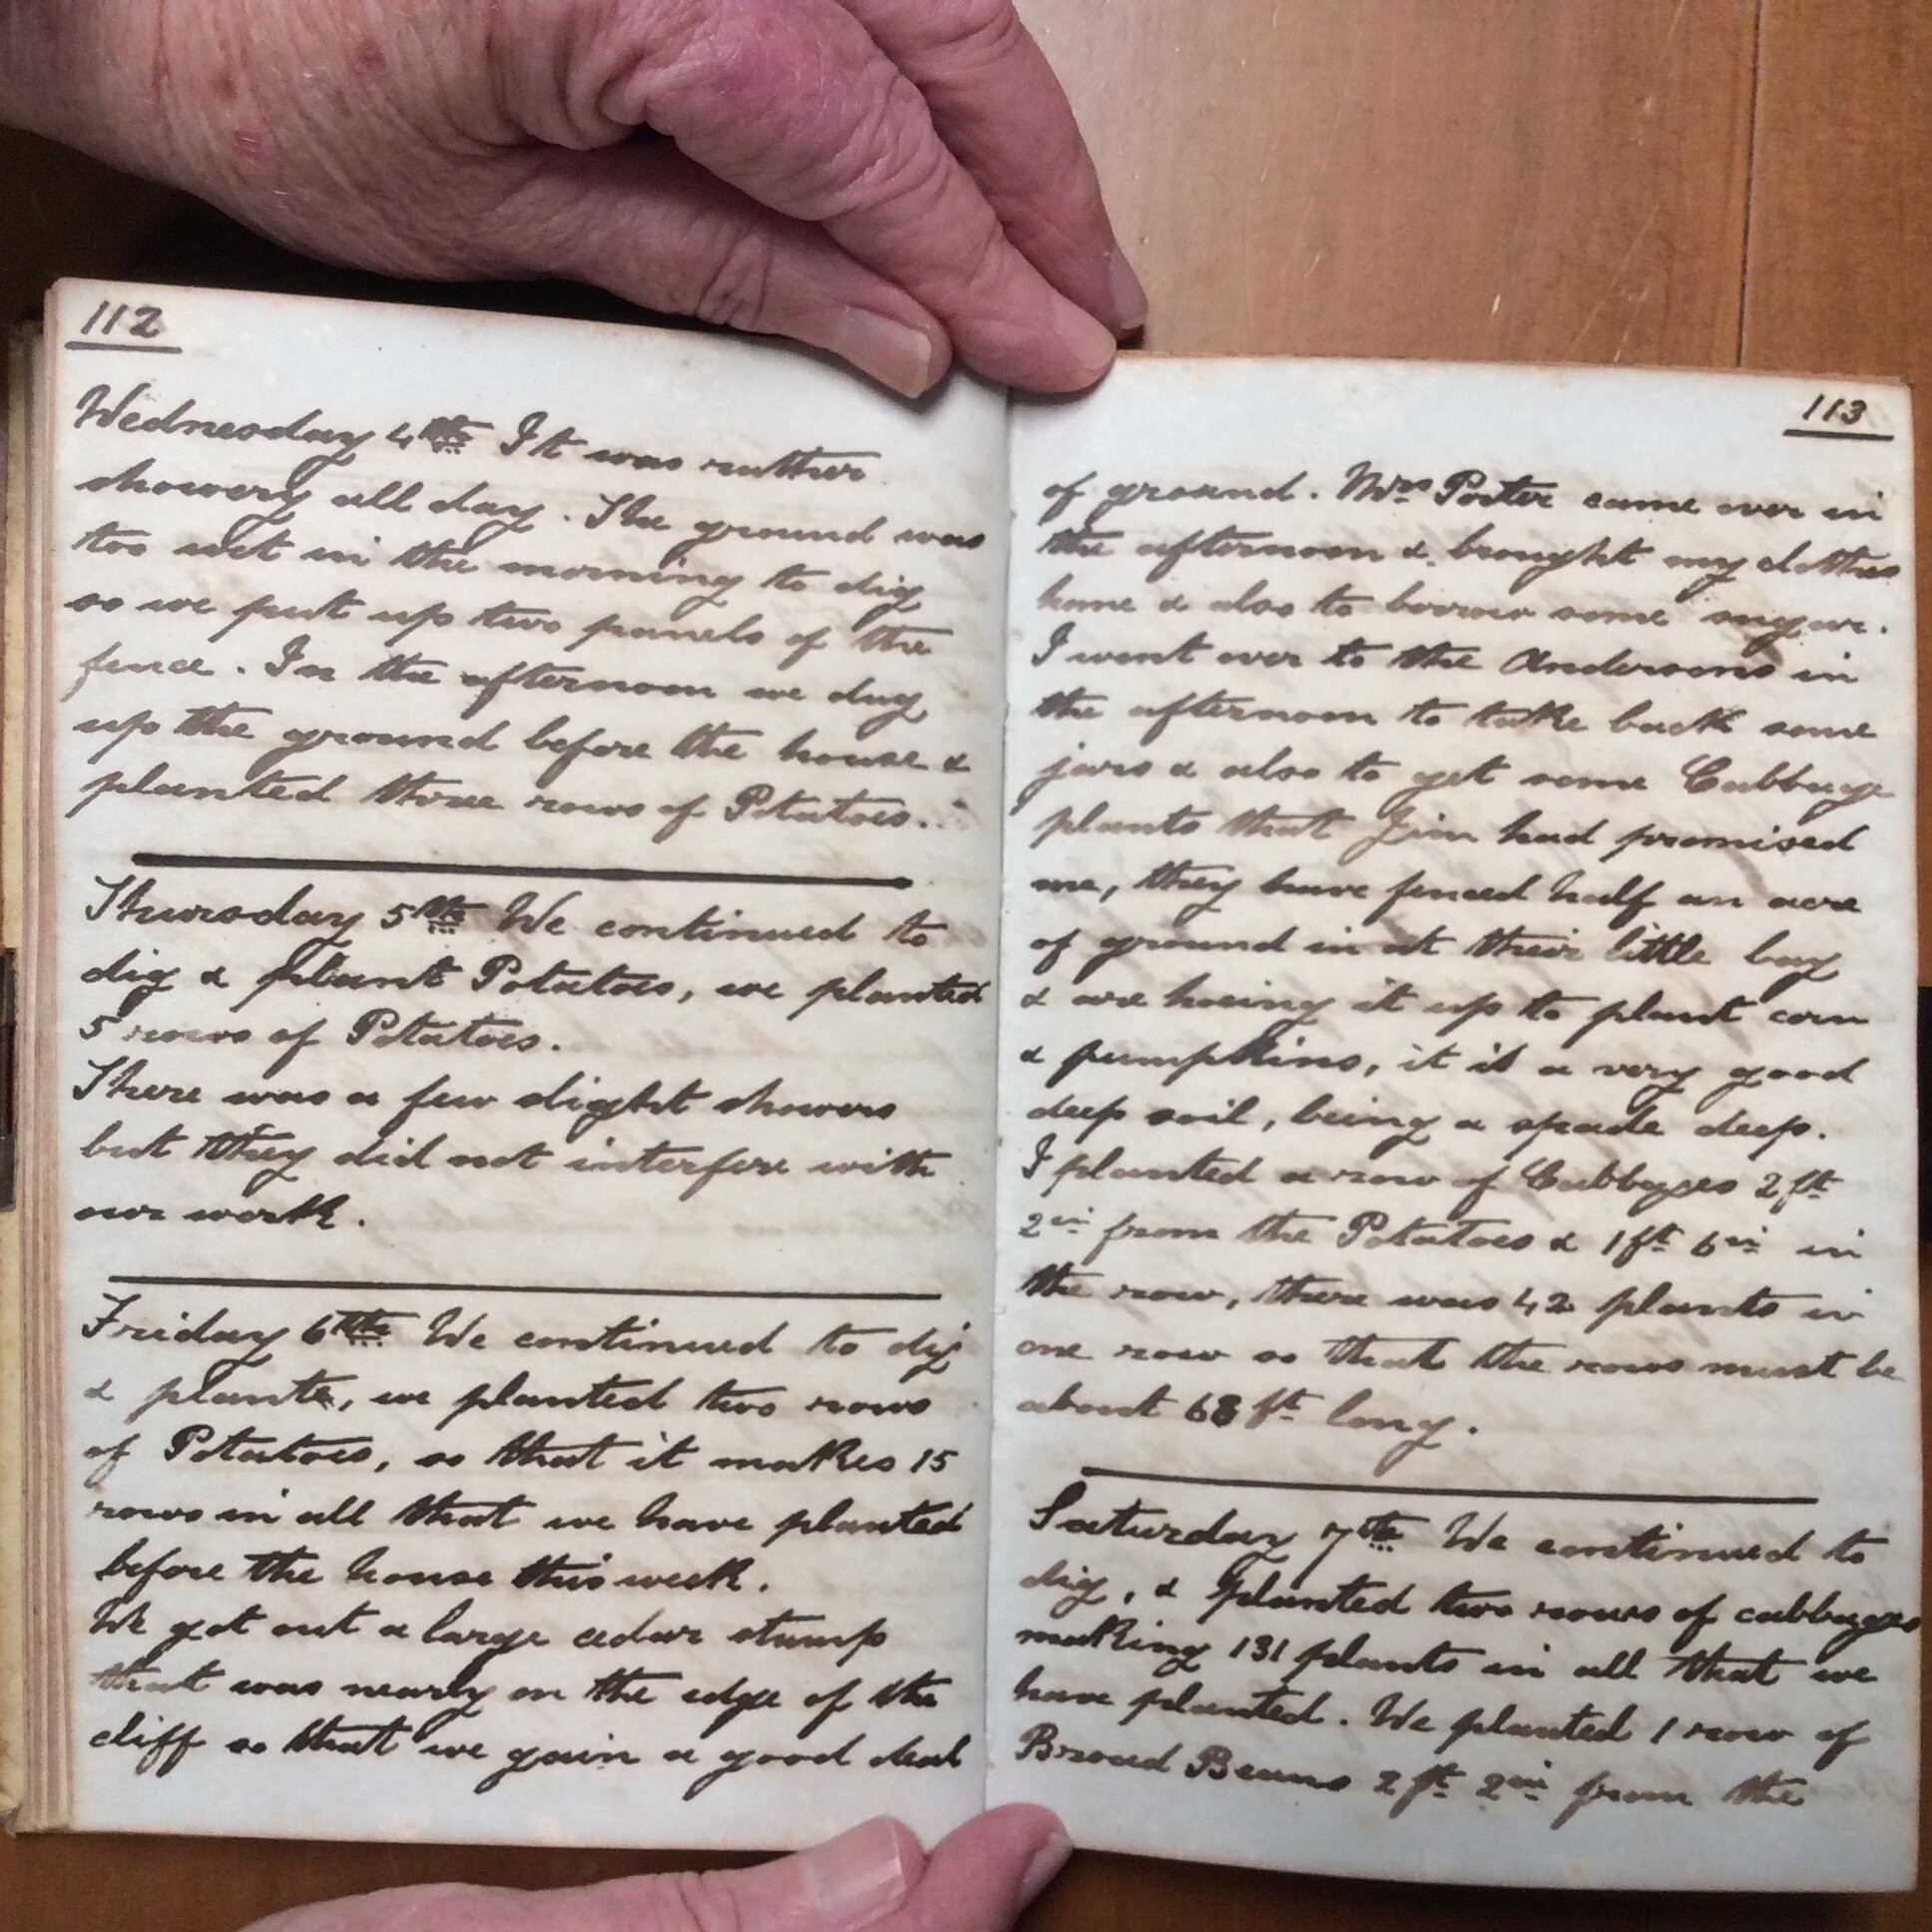 112
Wednesday 4th It was rather
showery all day. The ground was
too wet in the morning to dig
so we put up two panels of the
fence. In the afternoon we dug
up the ground before the house &
planted three rows of Potatoes.
Thursday 5th We continued to
dig & plant Potatoes, we planted
5 rows of Potatoes.
There was a few slight showers
but they did not interfere with
our work.
Friday 6th We continued to dig
& plant, we planted two rows
of Potatoes, so that it makes 15
rows in all that we have planted
before the house this week.
We got out a large cedar stump
that was nearly on the edge of the
cliff so that we gain a good deal
113
of ground. Mrs Porter came over in
the afternoon & brought my clothes
home & also to borrow some sugar.
I went over to the Andersons in
the afternoon to take back some
jars & also to get some Cabbage
plants that Jim had promised
me, they have fenced half an acre
of ground in at their little bay
& are hoeing it up to plant corn
& pumpkins, it is a very good
deep soil, being a spade deep.
I planted a row of Cabbages 2 ft
2 in from the Potatoes & 1 ft 6 in in
the row, there was 42 plants in
one row so that the rows must be
about 63 ft long.
Saturday 7th We continued to
dig, & planted two rows of cabbages
making 131 plants in all that we
have planted. We planted 1 row of
Broad Beans 2 ft 2 in from the